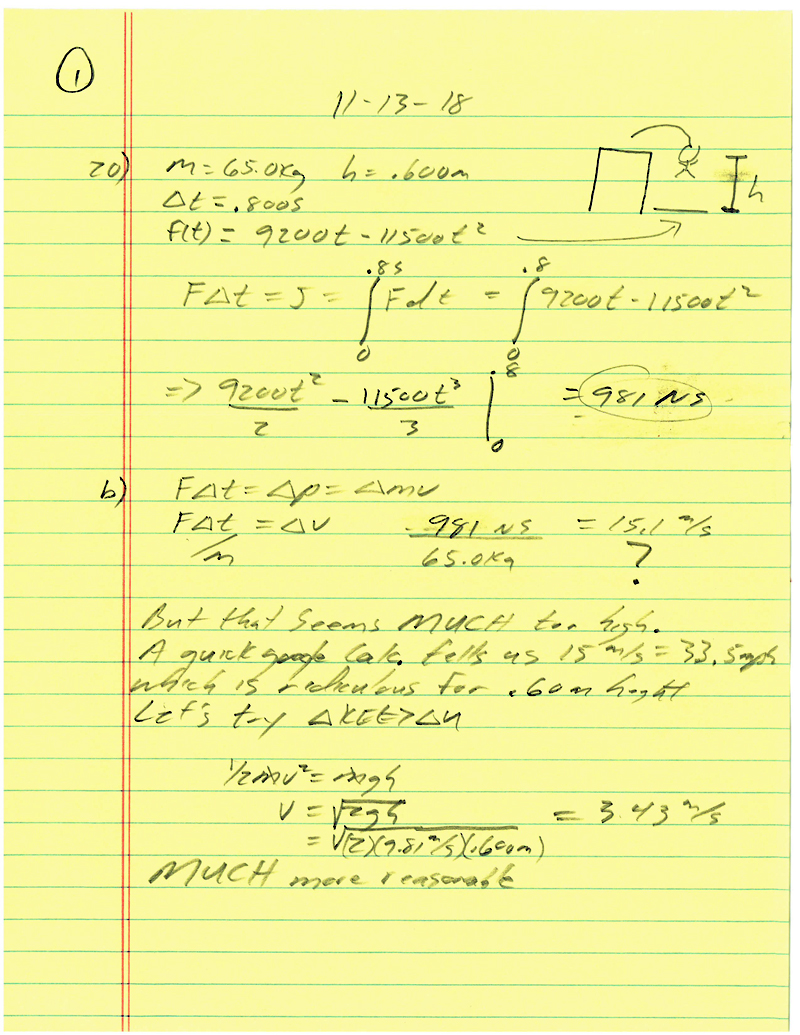 1
11-13-18
20) m = 65.0kg h = .600m
Δt = .800s
f(t) = 9200t - 11500t²
h
FΔt = J = ∫₀^.8s Fdt = ∫₀^.8 9200t - 11500t²
=> 9200t²/2 - 11500t³/3 |₀^.8 = 981 NS
b) FΔt = Δp = Δmv
FΔt/m = ΔV 981 NS/65.0kg = 15.1 m/s
?
But that seems MUCH too high.
A quick google calc. tells us 15 m/s = 33.5mph
which is ridiculous for .60m height
Let's try ΔKE<=>ΔU
1/2mv² = mgh
V = √2gh = 3.43 m/s
= √(2)(9.81 m/s)(.600m)
MUCH more reasonable